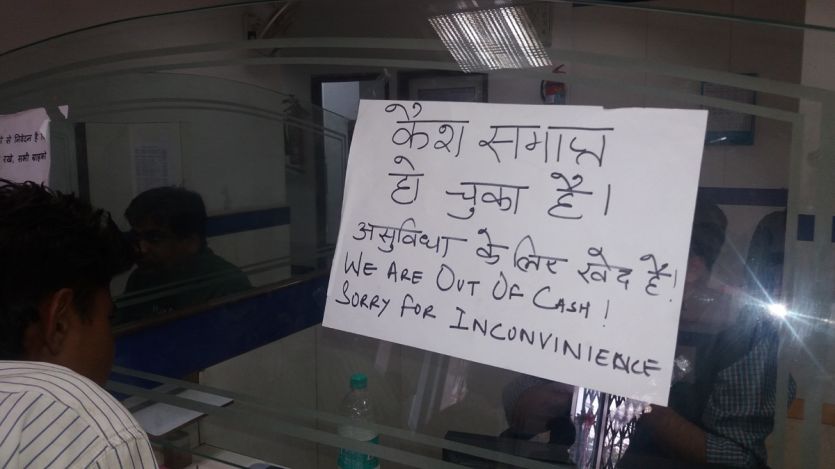 से निवेदन है
रखें, सभी ग्राहकों
कैश समाप्त
हो चुका है।
असुविधा के लिए खेद है!
WE ARE OUT OF CASH!
SORRY FOR INCONVINIENCE